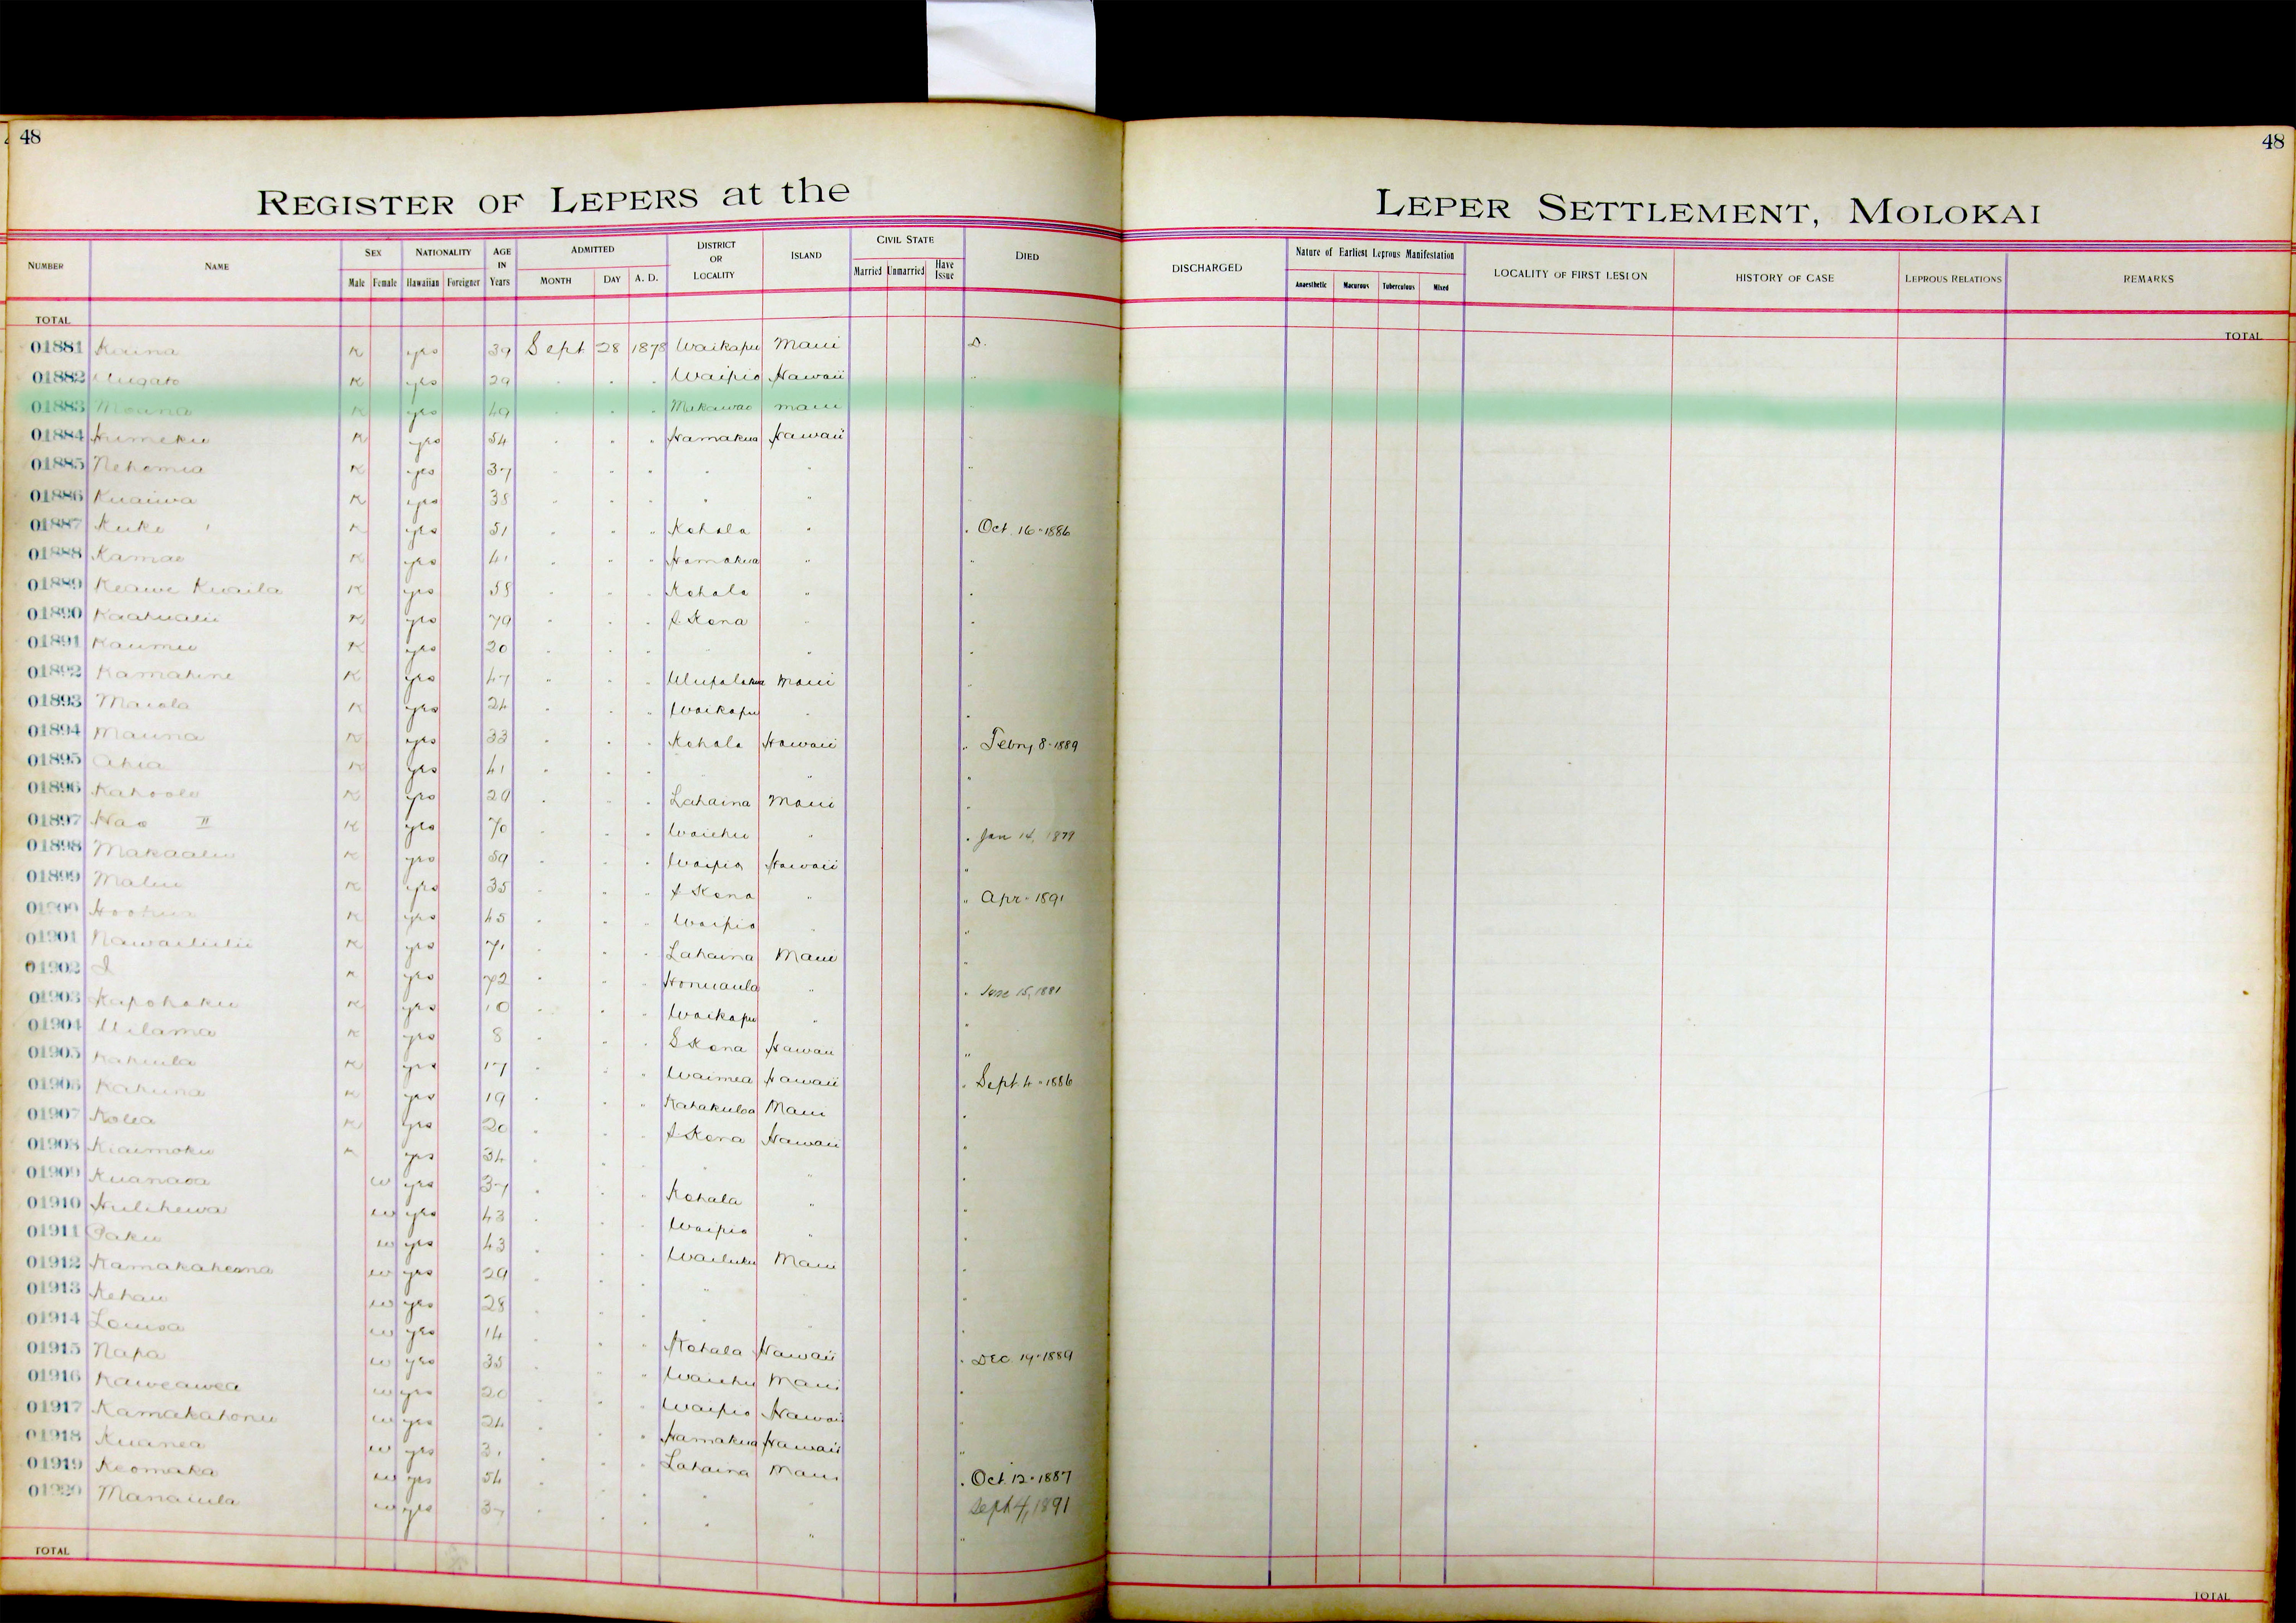 48
48
REGISTER OF LEPERS at the
LEPER SETTLEMENT, MOLOKAI
NUMBER NAME SEX Male Female NATIONALITY Hawaiian Foreigner AGE IN Years ADMITTED MONTH DAY A. D. DISTRICT OR LOCALITY ISLAND CIVIL STATE Married Unmarried Have Issue DIED
DISCHARGED Nature of Earliest Leprous Manifestation Anaesthetic Macurous Tuberculous Mixed LOCALITY OF FIRST LESION HISTORY OF CASE LEPROUS RELATIONS REMARKS
TOTAL
TOTAL
01881 K yes 39 Sept 28 1878 Waikapu Maui D.
01882 K yes 29 " " " Waipio Hawaii "
01883 Moana K yes 49 " " " Makawao Maui "
01884 Humeku K yes 54 " " " Hamakua Hawaii "
01885 Nehemia K yes 37 " " " " " "
01886 Kuaiwa K yes 38 " " " " " "
01887 Kuke K yes 51 " " " Kohala " " Oct. 16-1886
01888 Kamao K yes 41 " " " Hamakua " "
01889 Keawe Kuaila K yes 58 " " " Kohala " "
01890 Kaahualii K yes 79 " " " S Kona " "
01891 Kaumu K yes 20 " " " " " "
01892 Kamahine K yes 47 " " " Ulupalakua Maui "
01893 Maiola K yes 24 " " " Waikapu " "
01894 Mauna K yes 33 " " " Kohala Hawaii " Febry 8-1889
01895 Ahia K yes 41 " " " " "
01896 Kahoole K yes 29 " " " Lahaina Maui "
01897 Hao II K yes 70 " " " Waiehu " " Jan 14, 1879
01898 Makaalu K yes 59 " " " Waipio Hawaii "
01899 Malui K yes 35 " " " S Kona " " Apr. 1891
01900 K yes 45 " " " Waipio "
01901 Nawailulii K yes 71 " " " Lahaina Maui "
01902 I K yes 72 " " " Honuaula " " June 15, 1881
01903 Kapohaku K yes 10 " " " Waikapu " "
01904 Uilama K yes 8 " " " S Kona Hawaii "
01905 Kahiula K yes 17 " " " Waimea Hawaii " Sept. 4-1886
01906 Kahuna K yes 19 " " " Kahakuloa Maui "
01907 Kolea K yes 20 " " " S Kona Hawaii "
01908 Kiaimoku K yes 34 " " " " "
01909 Kuanaoa w yes 37 " " " Kohala " "
01910 Hulihewa w yes 43 " " " Waipio " "
01911 Paku w yes 43 " " " Wailuku Maui "
01912 w yes 29 " " " " "
01913 Kehau w yes 28 " " " " "
01914 Louisa w yes 14 " " " Kohala Hawaii " Dec. 19-1889
01915 Napa w yes 35 " " " Waiehu Maui "
01916 Kaweawea w yes 20 " " " Waipio Hawaii "
01917 Kamakahonu w yes 24 " " " Hamakua Hawaii "
01918 Kuanea w yes 31 " " " Lahaina Maui " Oct 12-1887
01919 Keomaka w yes 54 " " " " " Sept 4, 1891
01920 Manaiula w yes 37 " " " " " "
TOTAL
TOTAL